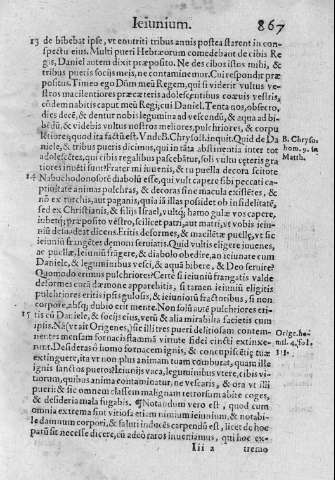 Ieiunium. 867
13 de bibebat ipse, vt enutriti tribus annis postea starent in con-
spectu eius. Multi pueri Hebræorum comedebant de cibis Re-
gis, Daniel autem dixit præposito. Ne des cibos istos mihi, &
tribus pueris socijs meis, ne contaminemur. Cui respondit præ
positus. Timeo ego Dñm meũ Regem, qui si viderit vultus ve-
stros macilentiores præ ceteris adolescẽtibus coæuis vestris,
cõdemnabitis caput meũ Regi, cui Daniel. Tenta nos, obsecro,
dies decẽ, & dentur nobis legumina ad vescendũ, & aqua ad bi-
bẽdũ, & videbis vultus nostros meliores, pulchriores, & corpu
lẽtiores, quod ita factũ est. Vnde B. Chrysost. inquit. Quid de Da B. Chryso
niele, & tribus pueris dicimus, qui in tãta abstinentia inter tot hom. 9. in
adolescẽtes, qui cibis regalibus pascebãtur, soli vultu ceteris gra Matth.
tiores inuẽti sunt? Frater mi iuuenis, & tu puella decora scitote
14 Nabuchodonosorẽ diabolũ esse, qui vult capere sibi peccati ca-
ptiuitate animas pulchras, & decoras sine macula existẽtes, &
nõ ex turchis, aut paganis, quia iã illas possidet ob infidelitatẽ,
sed ex Christianis, & filijs Israel, vultq; hamo gulæ vos capere,
iubetq; præposito vẽstro, scilicet patri, aut matri, vt vobis ieiu-
niũ denudẽt dicens. Eritis deformes, & macilẽtæ puellæ, vt sic
ieiuniũ frangẽtes dæmoni seruiatis. Quid vultis eligere iuuenes,
ac puellæ. Ieiuniũ frãgere, & diabolo obedire, an ieiunate cum
Daniele, & leguminibus vesci, & aquã bibere, & Deo seruire?
Quomodo erimus pulchriores? Certe si ieiuniũ frangatis valde
deformes corã dæmone apparebitis, si tamen ieiuniũ eligitis
pulchriores eritis ipsis gulosis, & ieiuniorũ fractoribus, si non
corpore, absq; dubio erit mente. Non solũ autẽ pulchriores eri-
15 tis cũ Daniele, & socijs eius, verũ & alia mirabilia facietis cum
ipsis. Nã (vt ait Origenes,) sic illi tres pueri delitiosam contem- Orige. ho-
nentes mensam fornacis flammã virtute fidei cincti extinxe- mil. 4. fol.
runt. Desideras ò homo fornacem ignis, & concupiscẽtiæ tuæ 11.
extinguere, ita vt non plus animam tuam comburat, quam ille
ignis sanctos pueros? Ieiunijs vaca, leguminibus vtere, cibis vi-
tiorum, quibus anima contaminatur, ne vescaris, & ora vt illi
pueri: & sic omnem classem malignam terrorisam abite coges,
& desideria mala fugabis. ¶Notandum vero est, quod cum
omnia extrema sint vitiosa etiam nimium ieiunium, & notabi-
le damnum corpori, & saluti induces carpendũ est, licet de hoc
parũ sit necesse dicere, cũ adeò raros inueniamus, qui hoc ex-
Iii 2 tremo